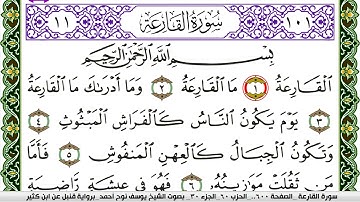 ١١ سُورَةُ القَارِعَةِ ١٠١
بِسْمِ اللَّهِ الرَّحْمَٰنِ الرَّحِيمِ
الْقَارِعَةُ ١ مَا الْقَارِعَةُ ٢ وَمَا أَدْرَىٰكَ مَا الْقَارِعَةُ
٣ يَوْمَ يَكُونُ النَّاسُ كَالْفَرَاشِ الْمَبْثُوثِ ٤
وَتَكُونُ الْجِبَالُ كَالْعِهْنِ الْمَنفُوشِ ٥ فَأَمَّا
مَن ثَقُلَتْ مَوَٰزِينُهُۥ ٦ فَهُوَ فِي عِيشَةٍ رَّاضِيَةٍ
سورة القارعة _الصفحة ٦٠٠... الحزب ٦٠_ الجزء ٣٠ . بصوت الشيخ يوسف نوح أحمد_ برواية قنبل عن ابن كثير